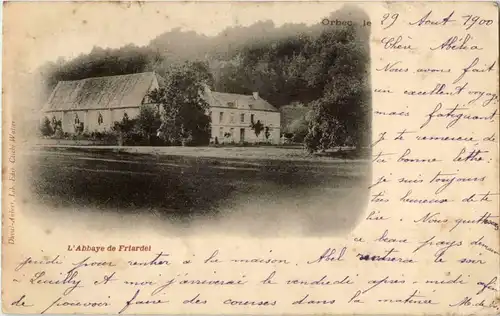 Orbec, le 29 Août 1900
Chère Abélia
Nous avons fait
un excellent voyage
mais fatiguant
Je te remercie de
ta bonne lettre.
je suis toujours
très heureuse de te
lire. Nous quittons
ce beau pays demain
jeudi pour rentrer à la maison. Abel rentrera le soir
à et moi j'arriverai le vendredi après-midi afin
de pouvoir faire des courses dans la matinée
L'Abbaye de Friardel